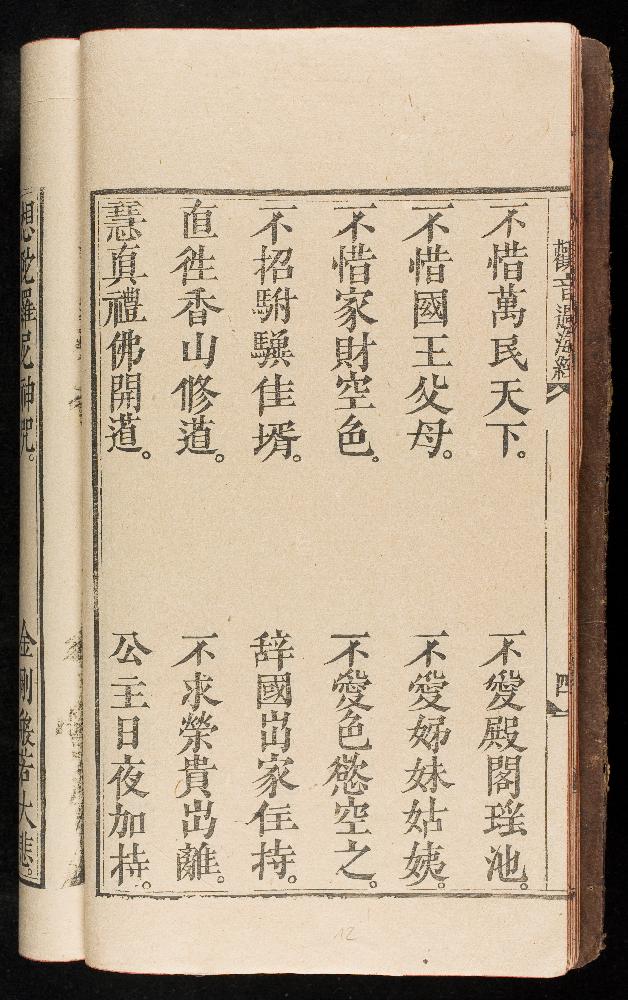 觀音過海經 四
不惜萬民天下。 不愛殿閣瑶池。
不惜國王父母。 不愛姊妹姑姨。
不惜家財空色。 不愛色慾空之。
不招駙驥佳壻。 辞國出家住持。
直徃香山修道。 不求榮貴出離。
慧真禮佛開道。 公主日夜加持。
想陀羅尼神咒。 金剛般若大悲。
12